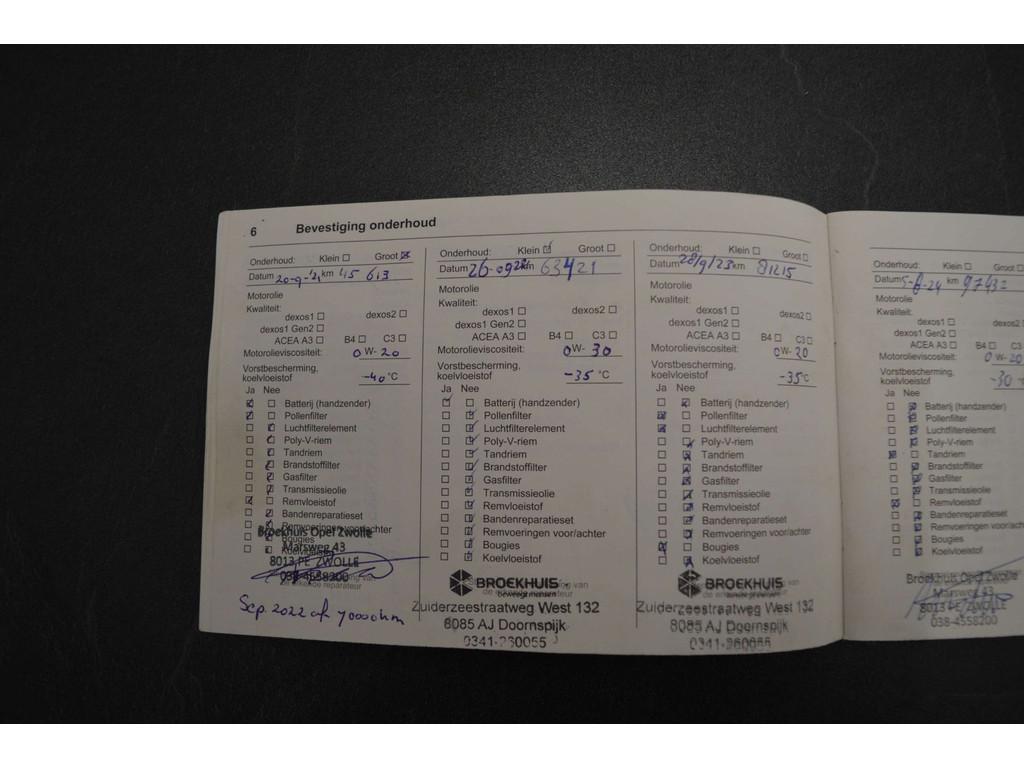 6 Bevestiging onderhoud
Onderhoud: Klein ☐ Groot ☒
Datum 20-9-'21 km 45 613
Motorolie
Kwaliteit:
dexos1 ☐ dexos2 ☐
dexos1 Gen2 ☐
ACEA A3 ☐ B4 ☐ C3 ☐
Motorolieviscositeit: 0 W- 20
Vorstbescherming,
koelvloeistof -40 °C
Ja Nee
Batterij (handzender)
Pollenfilter
Luchtfilterelement
Poly-V-riem
Tandriem
Brandstoffilter
Gasfilter
Transmissieolie
Remvloeistof
Bandenreparatieset
Remvoeringen voor/achter
Bougies
Koelvloeistof
Broekhuis Opel Zwolle
Marsweg 43
8013 PE ZWOLLE
038-4558200
de erkende reparateur
Sep. 2022 of 70000km
Onderhoud: Klein ☑ Groot ☐
Datum 26-09 km 63421
Motorolie
Kwaliteit:
dexos1 ☐ dexos2 ☐
dexos1 Gen2 ☐
ACEA A3 ☐ B4 ☐ C3 ☐
Motorolieviscositeit: 0W- 30
Vorstbescherming,
koelvloeistof -35 °C
Ja Nee
Batterij (handzender)
Pollenfilter
Luchtfilterelement
Poly-V-riem
Tandriem
Brandstoffilter
Gasfilter
Transmissieolie
Remvloeistof
Bandenreparatieset
Remvoeringen voor/achter
Bougies
Koelvloeistof
BROEKHUIS
beweegt mensen
Zuiderzeestraatweg West 132
8085 AJ Doornspijk
0341-260055
Onderhoud: Klein ☐ Groot ☐
Datum 28/9/23 km 81215
Motorolie
Kwaliteit:
dexos1 ☐ dexos2 ☐
dexos1 Gen2 ☐
ACEA A3 ☐ B4 ☐ C3 ☐
Motorolieviscositeit: 0W- 20
Vorstbescherming,
koelvloeistof -35 °C
Ja Nee
Batterij (handzender)
Pollenfilter
Luchtfilterelement
Poly-V-riem
Tandriem
Brandstoffilter
Gasfilter
Transmissieolie
Remvloeistof
Bandenreparatieset
Remvoeringen voor/achter
Bougies
Koelvloeistof
BROEKHUIS
Zuiderzeestraatweg West 132
8085 AJ Doornspijk
0341-260055
Onderhoud: Klein ☐ Groot ☐
Datum 5-8-24 km
Motorolie
Kwaliteit:
dexos1 ☐
dexos1 Gen2 ☐
ACEA A3 ☐ B4 ☐ C3
Motorolieviscositeit: 0 W-20
Vorstbescherming,
koelvloeistof -30 °C
Ja Nee
Batterij (handzender)
Pollenfilter
Luchtfilterelement
Poly-V-riem
Tandriem
Brandstoffilter
Gasfilter
Transmissieolie
Remvloeistof
Bandenreparatieset
Remvoeringen voor/ach
Bougies
Koelvloeistof
Broekhuis Opel Zwolle
Marsweg 43
8013 PE ZWOLLE
038-4558200